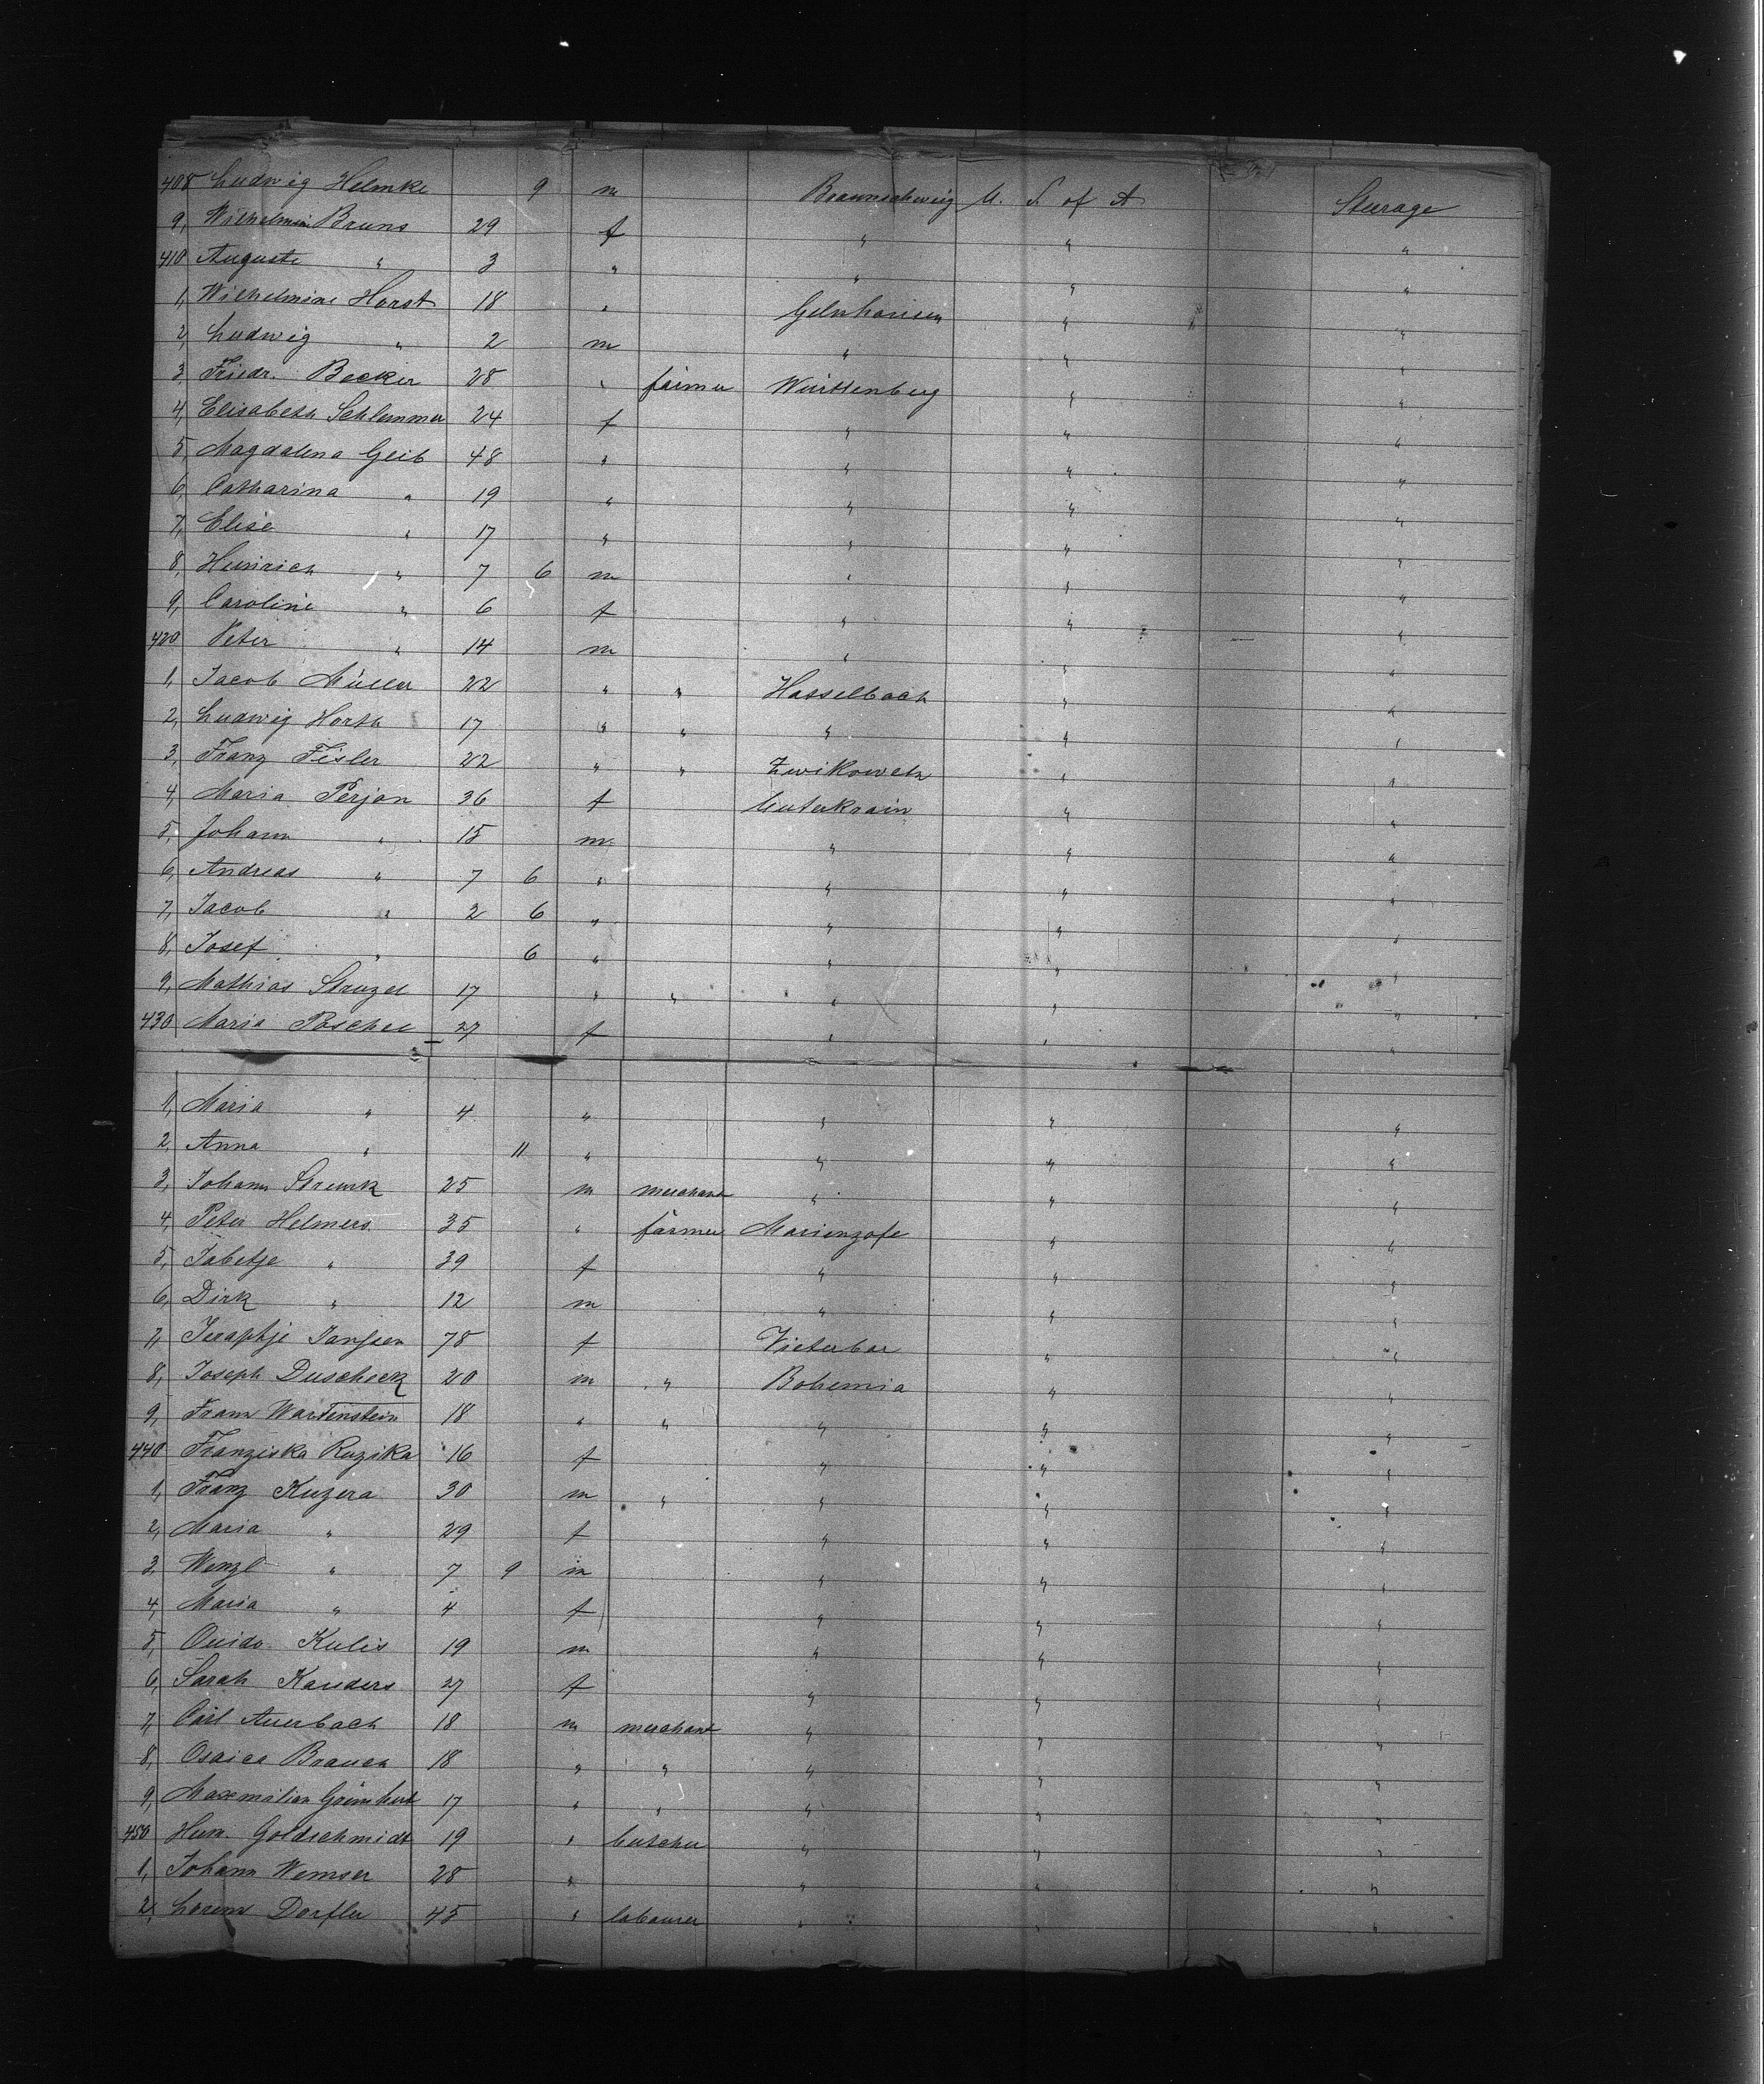 408 Ludwig Helmke 9 m Braunschweig U. S. of A Steerage
9, Wilhelmin Bruns 29 f " " "
410 Auguste " 3 " " " "
1, Wilhelmine Horst 18 " Gelnhausen " "
2, Ludwig " 2 m " " "
3, Friedr. Becker 28 " farmer Württenberg " "
4, Elisabeth Schlemmer 24 f " " "
5, Magdalena Geib 48 " " " "
6, Catharina " 19 " " " "
7, Elise " 17 " " " "
8, Heinrich " 7 6 m " " "
9, Caroline " 6 f " " "
420 Peter " 14 m " " "
1, Jacob Müller 22 " " Hasselbach " "
2, Ludwig Horth 17 " " " " "
3, Franz Fisler 22 " " Zwikowetz " "
4, Maria Perjan 36 f Unterkrain " "
5, Johann " 15 m " " "
6, Andreas " 7 6 " " " "
7, Jacob " 2 6 " " " "
8, Josef " 6 " " " "
9, Mathias 17 " " " " "
430 Maria Paschee 27 f " " "
1, Maria " 4 " " " "
2, Anna " 11 " " " "
3, Johann 25 m merchant " " "
4, Peter Helmers 35 " farmer " "
5, Tabetje " 39 f " " "
6, Dirk " 12 m " " "
7, Janssen 78 f Vieterbar " "
8, Joseph Duscheck 20 m " Bohemia " "
9, Franz Wartenstein 18 " " " " "
440 Franziska Ruzika 16 f " " "
1, Franz Kuzera 30 m " " " "
2, Maria " 29 f " " "
3, Wenzl " 7 9 m " " "
4, Maria " 4 f " " "
5, Kulis 19 m " " "
6, Sarah Kauders 27 f " " "
7, Carl Auerbach 18 m merchant " " "
8, Brauch 18 " " " " "
9, Maxmilian 17 " " " " "
450 Herm. Goldschmidt 19 " butcher " " "
1, Johann Wemser 28 " " " "
2, Lorenz Dorfler 45 " labourer " " "